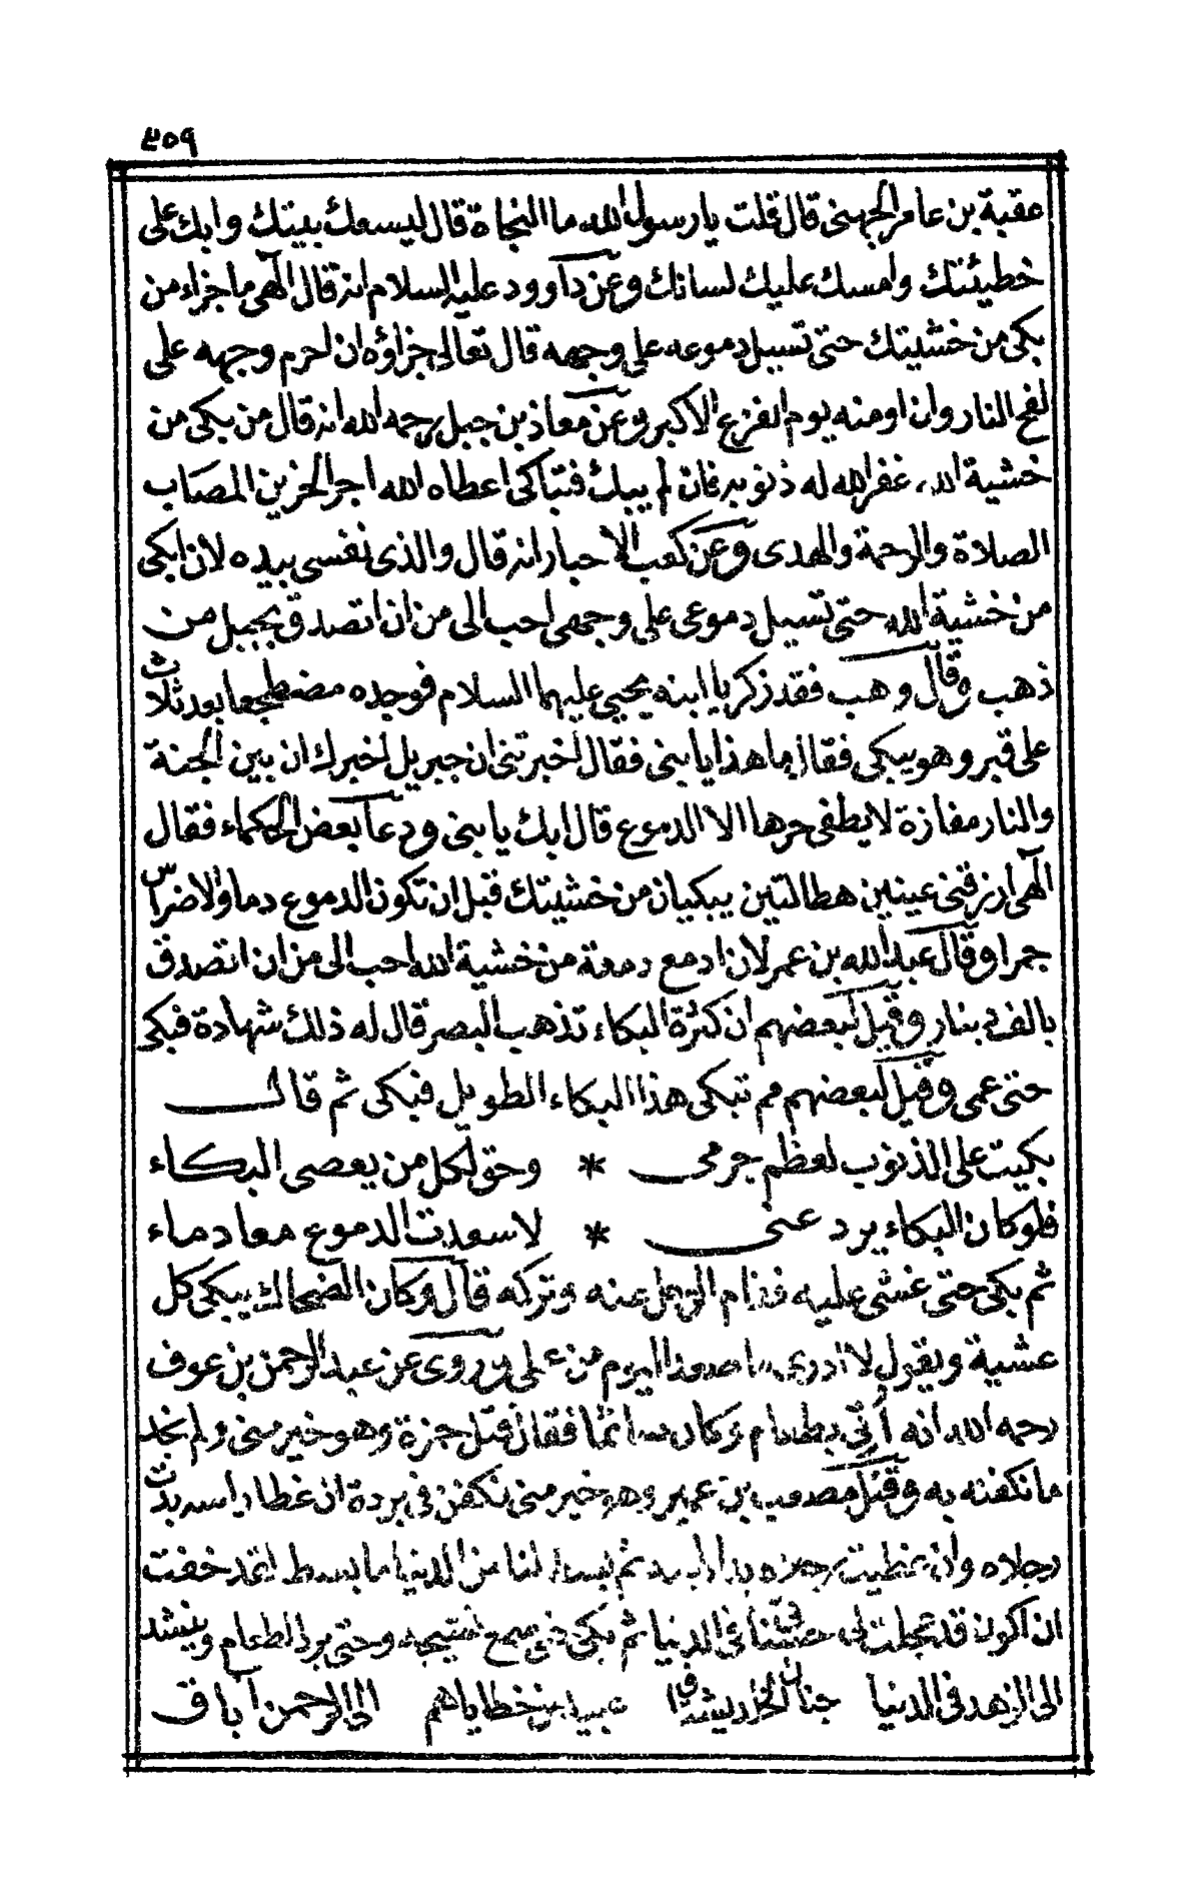 ٤٥٩
عقبة بن عامر الجهنى قال قلت يا رسول الله ما النجاة قال ليسعك بيتك وابك على
خطيئتك وامسك عليك لسانك وعن داوود عليه السلام انه قال الهى ما جزاء من
بكى من خشيتك حتى تسيل دموعه على وجهه قال تعالى جزاؤه ان احرم وجهه على
لفح النار وان اومنه يوم الفزع الاكبر وعن معاذ بن جبل رحمه الله انه قال من بكى من
خشية الله غفر الله له ذنوبه فان لم يبك فتباكى اعطاه الله اجر الحزين المصاب
الصلاة والرحمة والهدى وعن كعب الاحبار انه قال والذى نفسى بيده لان ابكى
من خشية الله حتى تسيل دموعى على وجهى احب الى من ان اتصدق بجبل من
ذهب وقال وهب فقد زكريا ابنه يحيى عليهما السلام فوجده مضطجعا بعد ثلاث
على قبر وهو يبكى فقال ما هذا يا بنى فقال اخبرتنى ان جبريل اخبرك ان بين الجنة
والنار مفازة لا يطفى حرها الا الدموع قال ابك يا بنى ودعا بعض الحكماء فقال
الهى ارزقنى عينين هطالتين يبكيان من خشيتك قبل ان تكون الدموع دما والاضراس
جمرا وقال عبد الله بن عمر لان ادمع دمعة من خشية الله احب الى من ان اتصدق
بالف دينار وقيل لبعضهم ان كثرة البكاء تذهب البصر قال له ذلك شهادة فبكى
حتى عمى وقيل لبعضهم مم تبكى هذا البكاء الطويل فبكى ثم قال
بكيت على الذنوب لعظم جرمى * وحق لكل من يعصى البكاء
فلو كان البكاء يرد عنى * لاسعدت الدموع معا دماء
ثم بكى حتى غشى عليه فقام الرجل عنه وتركه قال وكان الضحاك يبكى كل
عشية ويقول لا ادرى ما صعد اليوم من عملى وروى عن عبد الرحمن بن عوف
رحمه الله انه أتي بطعام وكان صائما فقال قتل حمزة وهو خير منى ولم نجد
ما نكفنه به وقتل مصعب بن عمير وهو خير منى نكفن فى بردة ان غطا راسه بدت
رجلاه وان غطيت رجلاه بدا راسه ثم بسط لنا من الدنيا ما بسط لقد خفت
ان اكون قد عجلت لى فى الدنيا ثم بكى حتى سمع نحيبه وحتى برد الطعام وينشد
الى الزهد فى الدنيا جنان الخلد يشتاق عبيد من خطاياهم الى الرحمن آباق